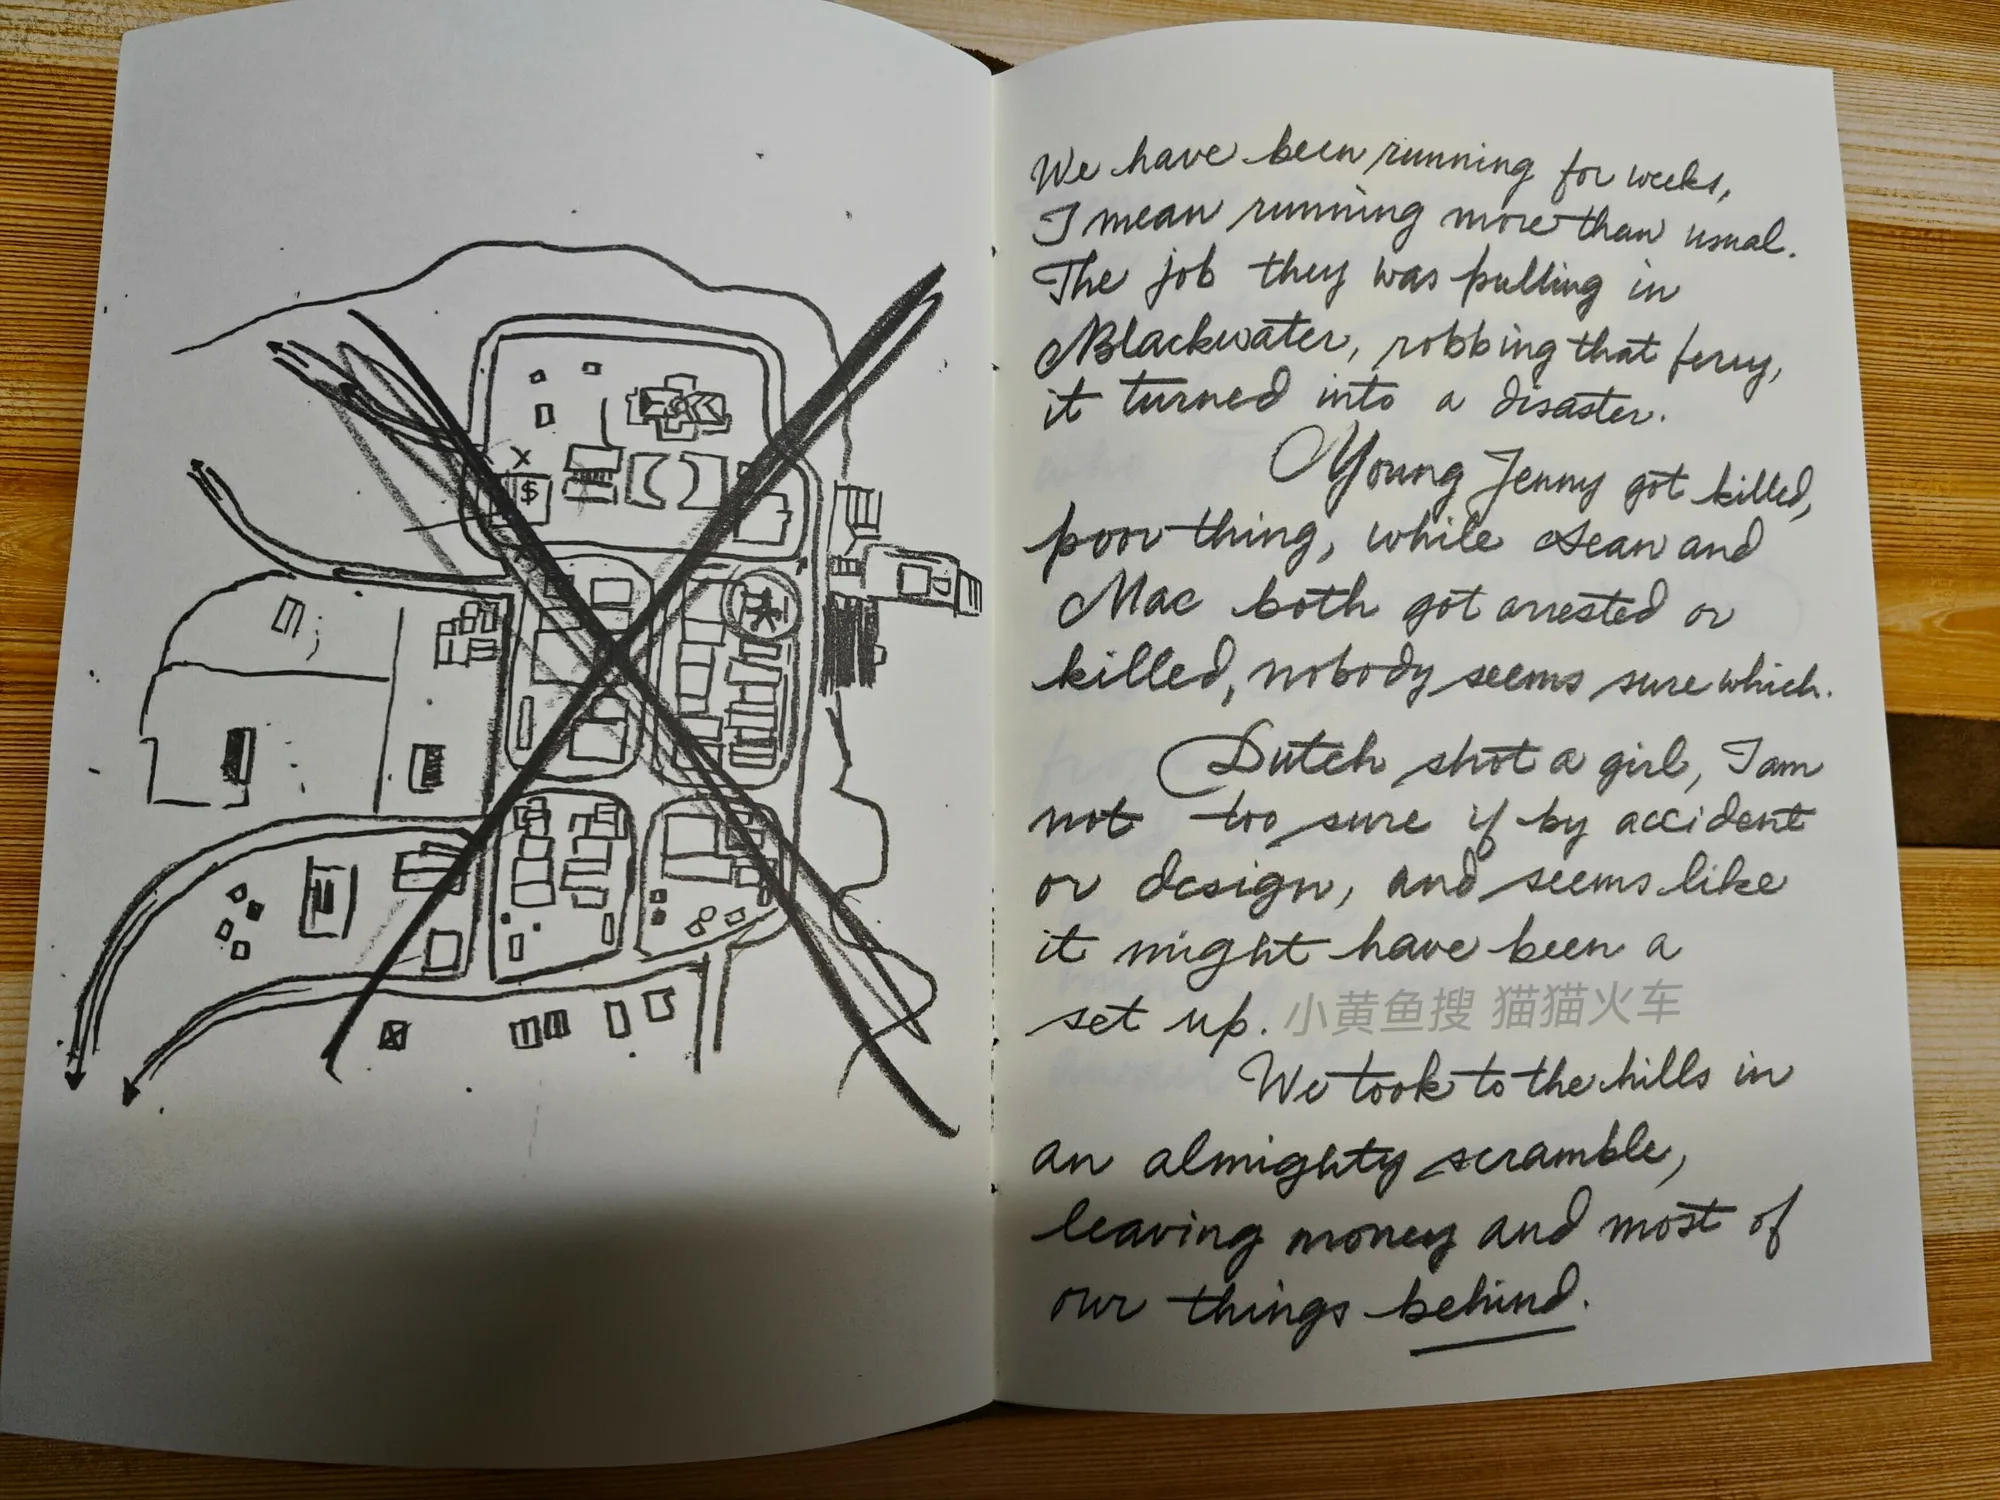 X
$
We have been running for weeks,
I mean running more than usual.
The job they was pulling in
Blackwater, robbing that ferry,
it turned into a disaster.
Young Jenny got killed,
poor thing, while Sean and
Mac both got arrested or
killed, nobody seems sure which.
Dutch shot a girl, I am
not too sure if by accident
or design, and seems like
it might have been a
set up.
小黄鱼搜 猫猫火车
We took to the hills in
an almighty scramble,
leaving money and most of
our things behind.